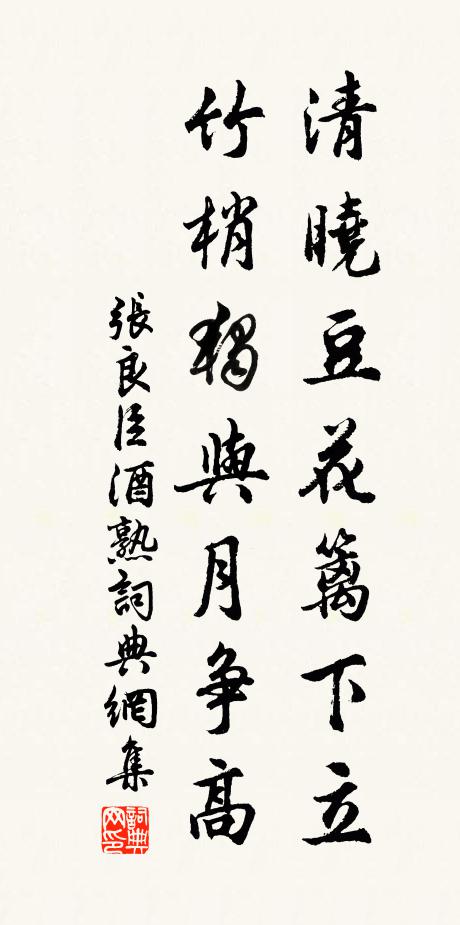 清曉豆花籬下立
竹梢獨與月爭高
張良臣酒熟詞典網集
詞典网印